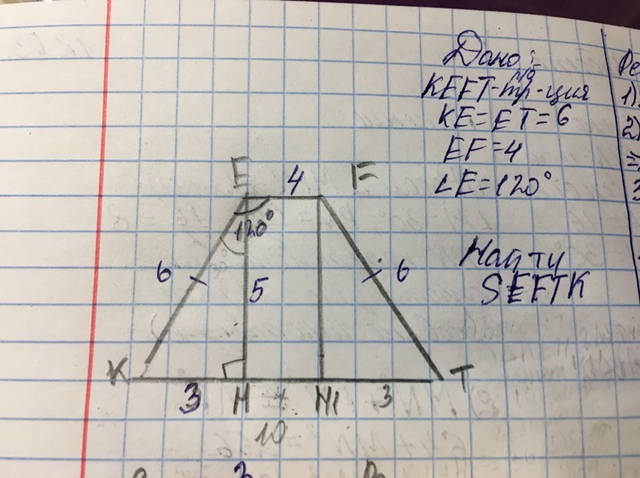 Дано:
KEFT-тр-ция
KE=ET=6
EF=4
∠E=120°
Найти
SEFTK
E 4 F
120°
6 5 6
K H H1 T
3 4 3
10
1)
2)